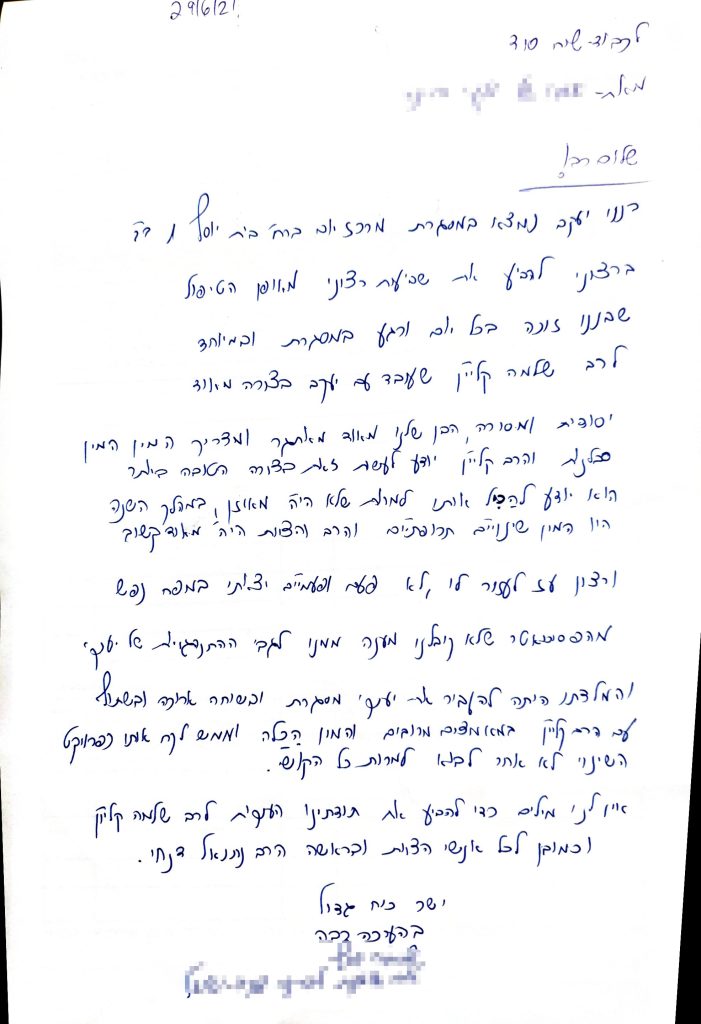 29/6/21
לכבוד שיח סוד
מאת-
שלום רב!
בננו יעקב נמצא במסגרת מרכז יום ברח' בית יוסף
ברצוני להביע את שביעות רצוני מאופן הטיפול
שבננו זוכה בכל יום ורגע במסגרת ובמיוחד
לרב שלמה קליין שעובד עם יעקב בצורה מאוד
יסודית ומסורה, הבן שלנו מאוד מאתגר ומצריך המון המון
סבלנות והרב קליין יודע לעשות זאת בצורה הטובה ביותר
הוא יודע להכיל אותו למרות שלא היה מאוזן, במהלך השנה
היו המון שינויים תרופתיים והרב והצוות היה מאוד קשוב
ורצון עז לעזור לי, לא פעם ופעמיים יצאתי במפח נפש
מהפסיכיאטר שלא קיבלנו מענה ממנו לגבי ההתנהגות של יעקב
והמלצתו היתה להעביר את יעקב מסגרת ובשיחה ארוכה ובשיתוף
עם הרב קליין במאמצים מרובים והמון הכלה וממש לקח אותו כפרויקט
השינוי לא אחר לבוא למרות כל הקושי.
אין לנו מילים כדי להביע את תודתינו העמוקה לרב שלמה קליין
וכמובן לכל אנשי הצוות ובראשה הרב נתנאל דנחי.
ישר כוח גדול
בהערכה רבה